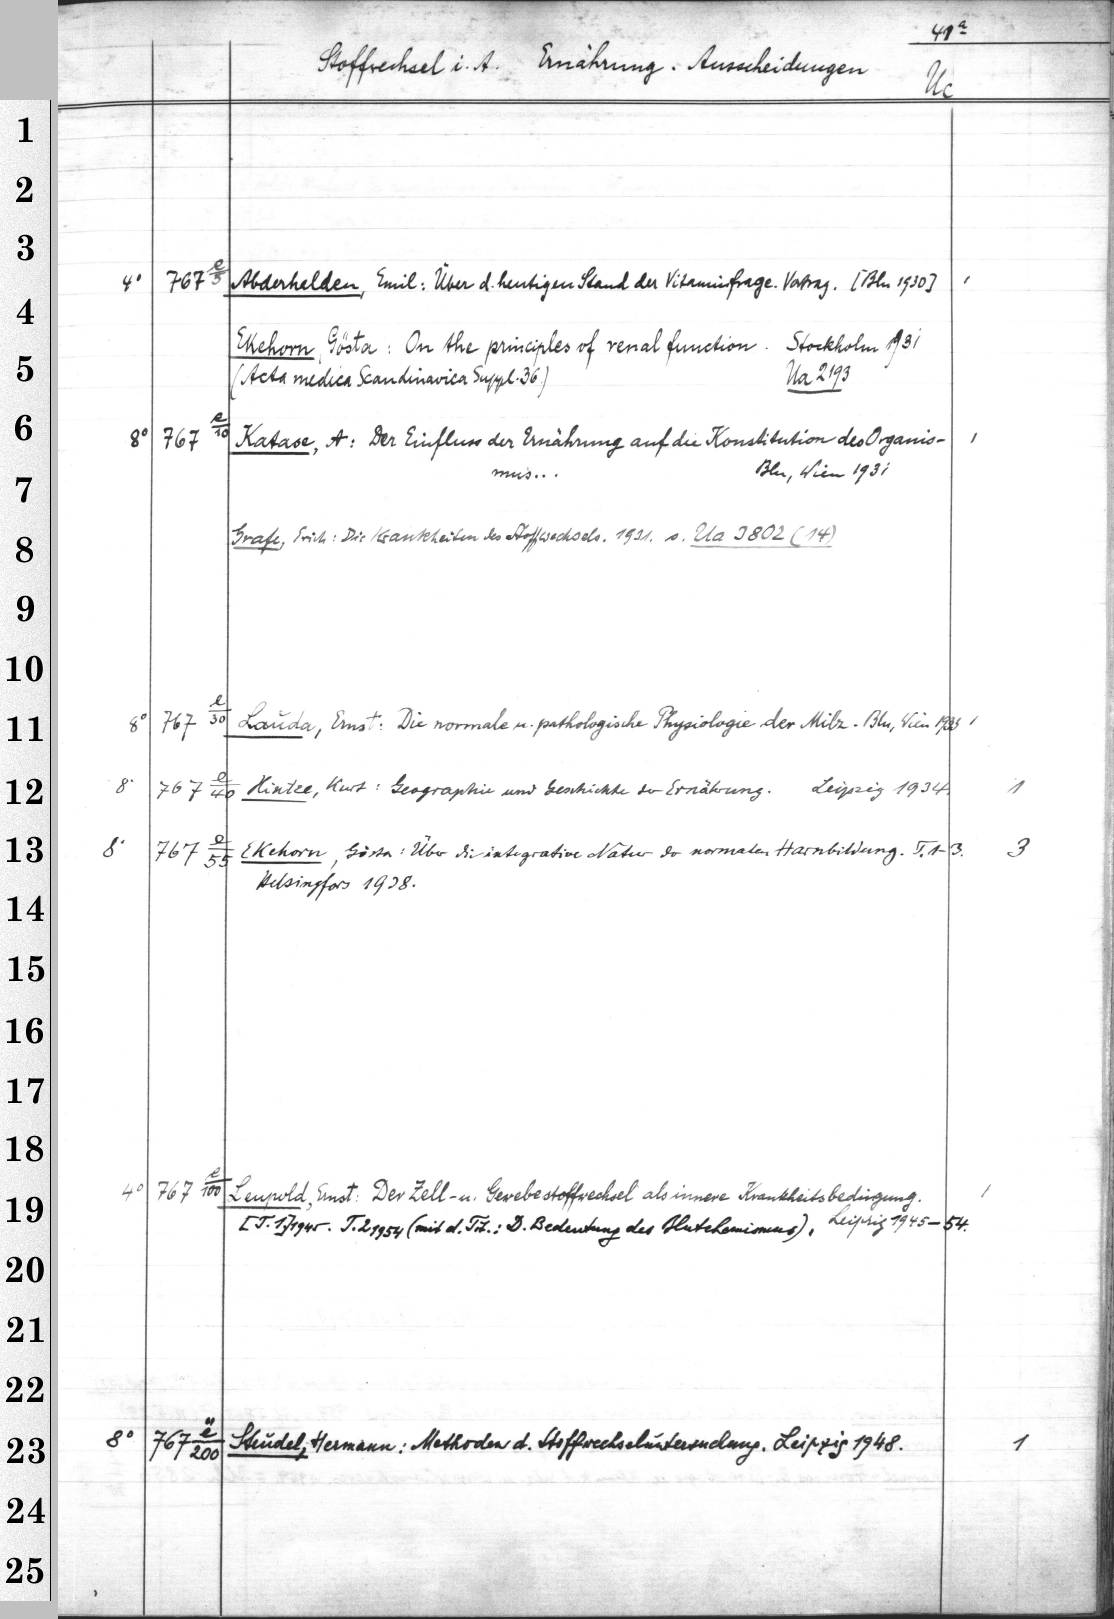 41a
Stoffwechsel i. A. Ernährung. Ausscheidungen
Uc
1
2
3
4° 767 e/5 Abderhalden, Emil: Über d. heutigen Stand der Vitaminfrage. Vortrag. [Bln 1930] 1
4
Ekehorn, Gösta: On the principles of renal function. Stockholm 1931
5
(Acta medica Scandinavica Suppl. 36.) Ua 2193
6
8° 767 e/10 Katase, A: Der Einfluss der Ernährung auf die Konstitution des Organis- 1
mus... Bln, Wien 1931
7
Grafe, Erich: Die Krankheiten des Stoffwechsels. 1931. s. Ua 3802 (14)
8
9
10
8° 767 e/30 Lauda, Ernst: Die normale u. pathologische Physiologie der Milz. Bln, Wien 1933 1
11
8° 767 e/40 Hintze, Kurt: Geographie und Geschichte der Ernährung. Leipzig 1934. 1
12
8° 767 e/55 Ekehorn, Gösta: Über die integrative Natur der normalen Harnbildung. T. 1-3. 3
13
Helsingfors 1938.
14
15
16
17
18
4° 767 e/100 Leupold, Ernst: Der Zell- u. Gewebestoffwechsel als innere Krankheitsbedingung. 1
19
[T. 1] 1945. T. 2 1954 (mit d. Tit.: D. Bedeutung des Blutchemismus), Leipzig 1945-54.
20
21
22
8° 767 ë/200 Steudel, Hermann: Methoden d. Stoffwechseluntersuchung. Leipzig 1948. 1
23
24
25